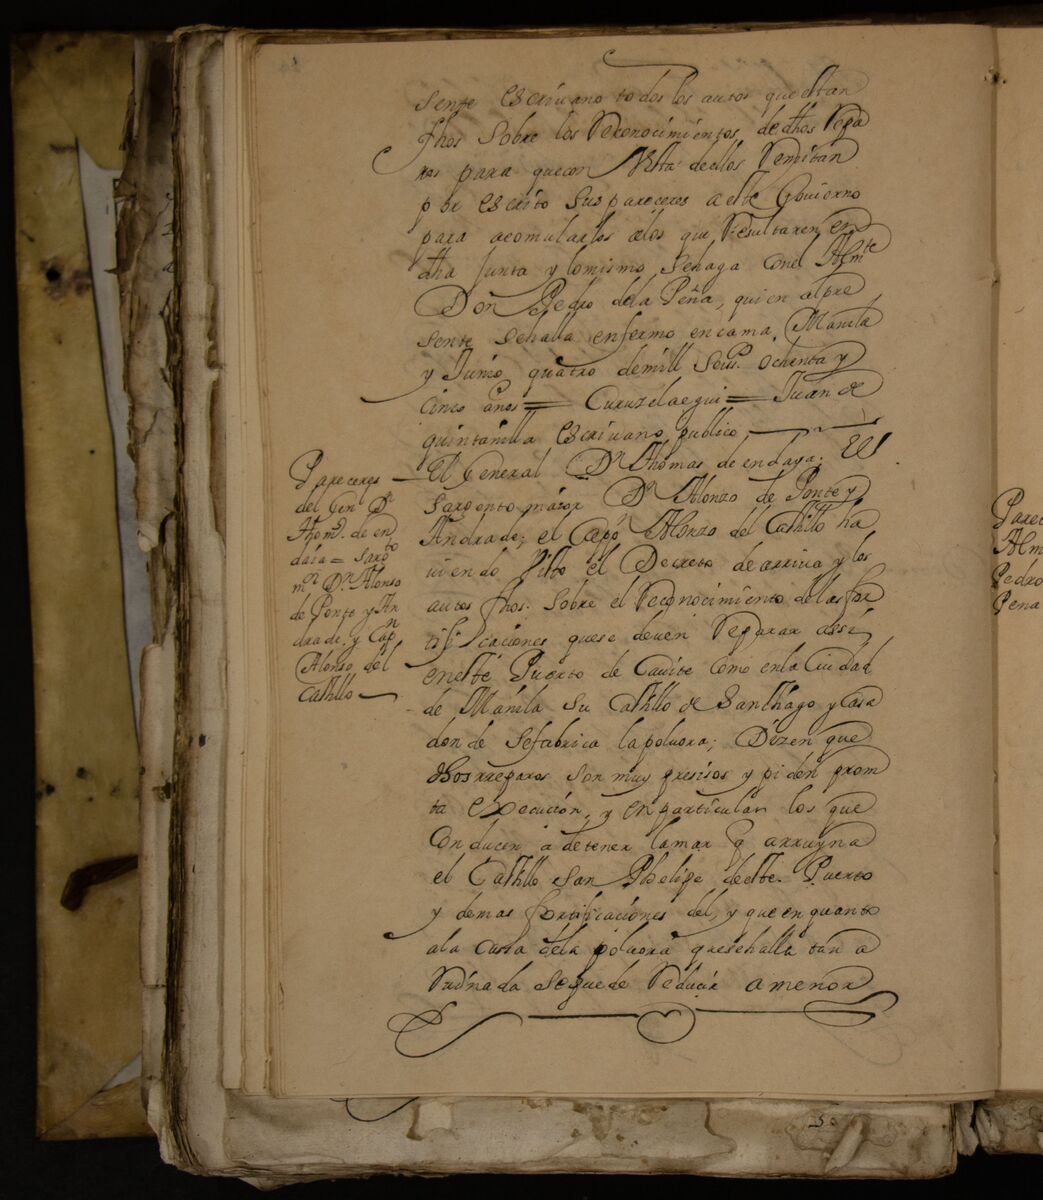 sente escriuano todos los autos que estan
fhos sobre los Reconocimientos, de dhos Repa
ros para que con Vista de ellos Remitan
por escrito sus pareceres a este Gouierno
para acomularlos alos que Resultaren en
dha Junta y lo mismo se haga con el Almte
Don Pedro de la Peña, quien al pre
sente se halla enfermo en cama, Manila
y Junio quatro de mill seiss. ochenta y
cinco años = Curuzelaegui = Juan de
quintanilla escriuano publico,
Pareceres
del Genl Dn
Thomas de en
daia = Sargto
mr Dn Alonso
de Ponte y An
drade, y Capn
Alonso del
Castillo
El General Dn Thomas de endaya;
Sargento mayor Dn Alonzo de Ponte y
Andrade; el Capn Alonzo del Castillo ha
uiendo Visto el Decreto de arriua y los
autos fhos. sobre el Reconocimiento de las for
tificaciones que se deuen Reparar assi
en este Puerto de Cauite como en la Ciudad
de Manila su Castillo de Santhiago y Casa
donde se fabrica la poluora; Dizen que
dhos rreparos son muy presisos y piden prom
ta execucion, y en particular los que
conducen a detener la mar q arruyna
el Castillo San Phelipe deste Puerto
y demas fortificaciones del, y que en quanto
ala cassa de la poluora que se halla tan a
Rruynada se puede Reducir a menor
Parec
Alm
Pedro
Pena